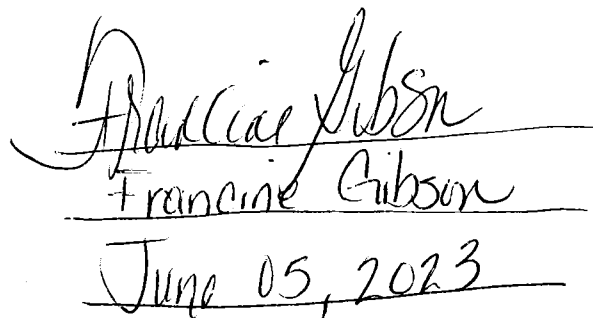 Francine Gibson
Francine Gibson
June 05, 2023